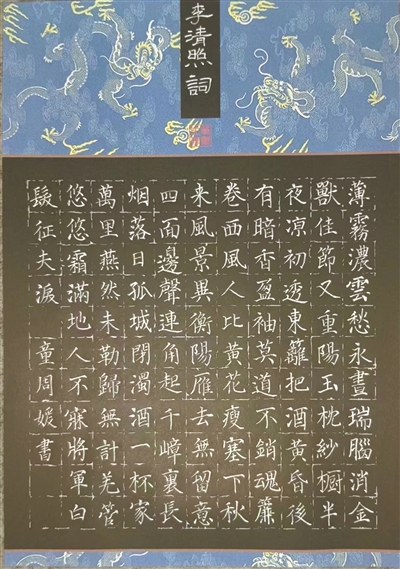 李清照詞
薄霧濃雲愁永晝瑞腦消金
獸佳節又重陽玉枕紗橱半
夜凉初透東籬把酒黃昏後
有暗香盈袖莫道不銷魂簾
卷西風人比黃花瘦塞下秋
来風景異衡陽雁去無留意
四面邊聲連角起千嶂裏長
烟落日孤城閉濁酒一杯家
萬里燕然未勒歸無計羌管
悠悠霜滿地人不寐將軍白
髮征夫淚 童周媛書